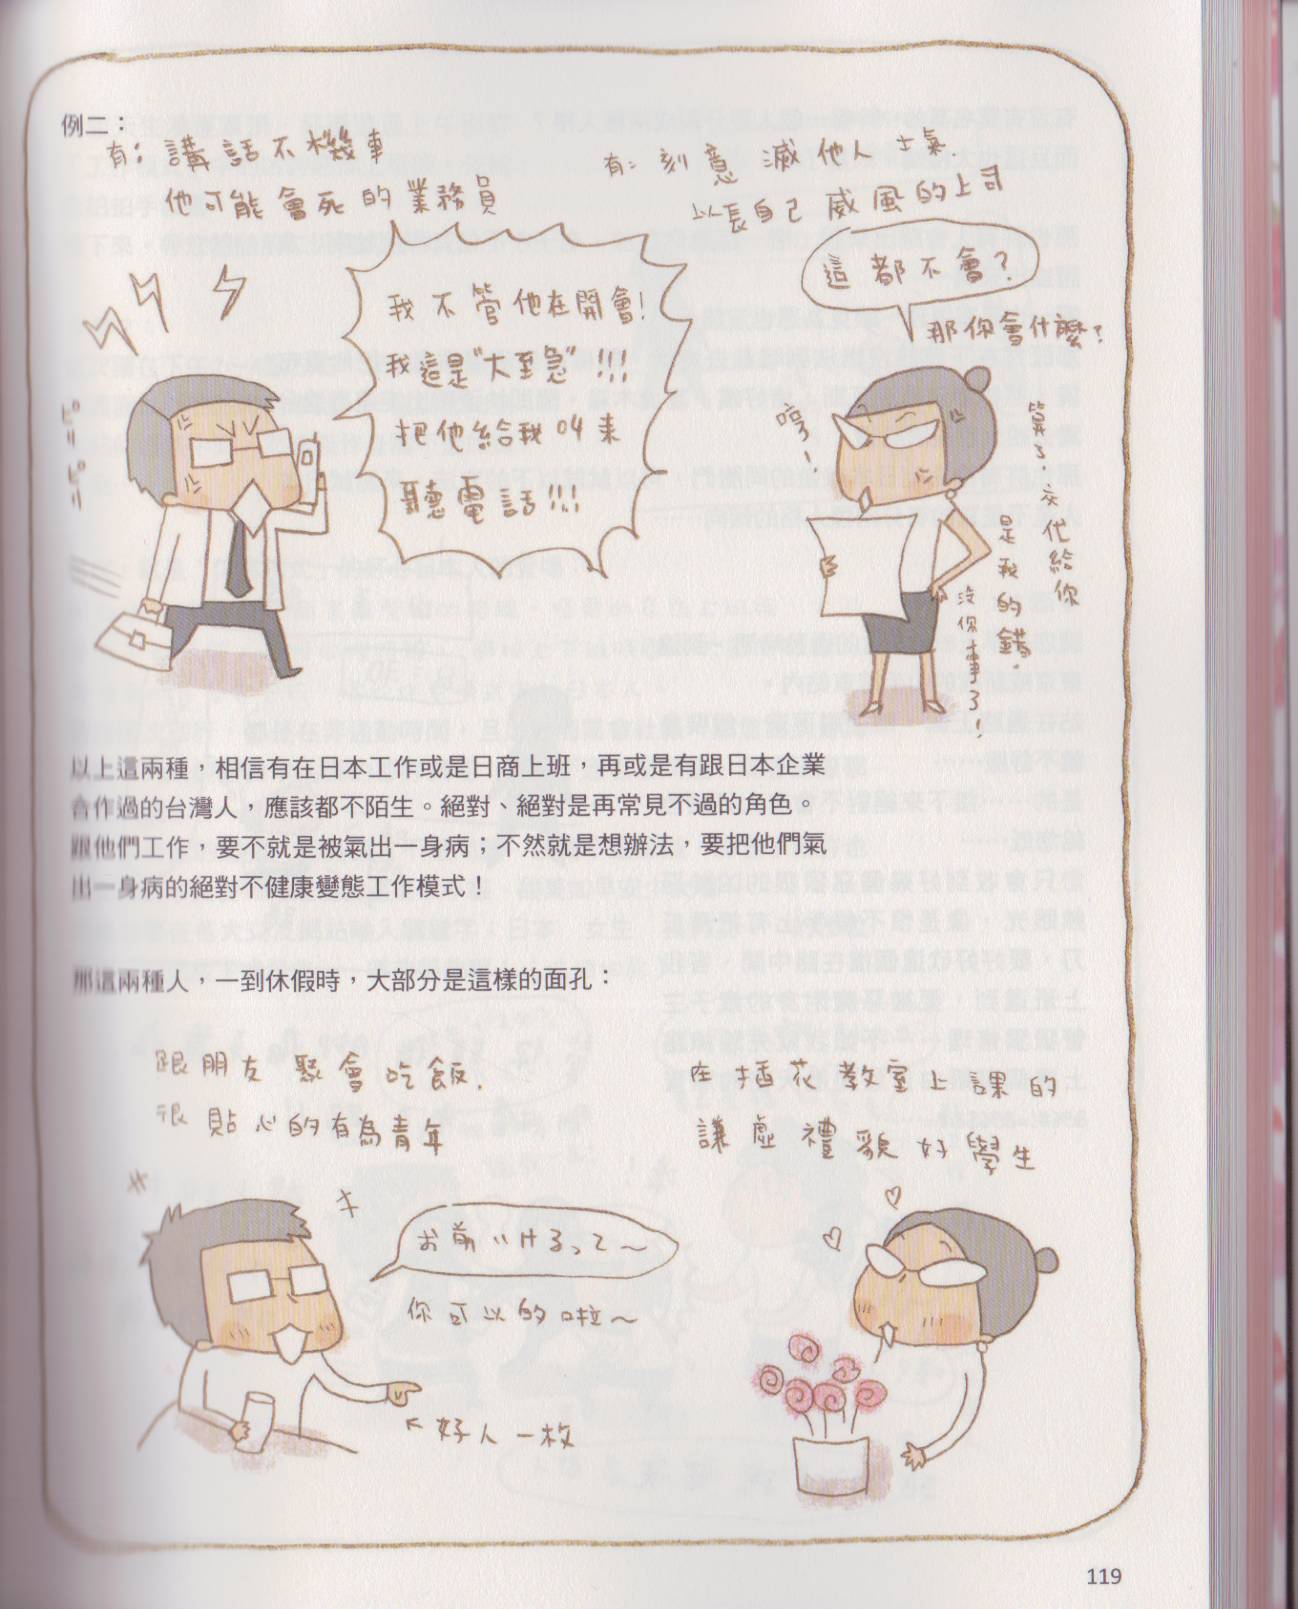 例二：
有：講話不機車
他可能會死的業務員
有：刻意滅他人士氣
以長自己威風的上司
我不管他在開會！
我這是"大至急"!!!
把他給我叫来
聽電話!!!
ピリピリ
這都不會？
那你會什麼？
哼！
算了，交代給你
是我的錯。
沒你事了！
以上這兩種，相信有在日本工作或是日商上班，再或是有跟日本企業
合作過的台灣人，應該都不陌生。絕對、絕對是再常見不過的角色。
跟他們工作，要不就是被氣出一身病；不然就是想辦法，要把他們氣
出一身病的絕對不健康變態工作模式！
那這兩種人，一到休假時，大部分是這樣的面孔：
跟朋友聚會吃飯.
很貼心的有為青年
お前いけるって～
你可以的啦～
←好人一枚
在插花教室上課的
謙虛禮貌好學生
119